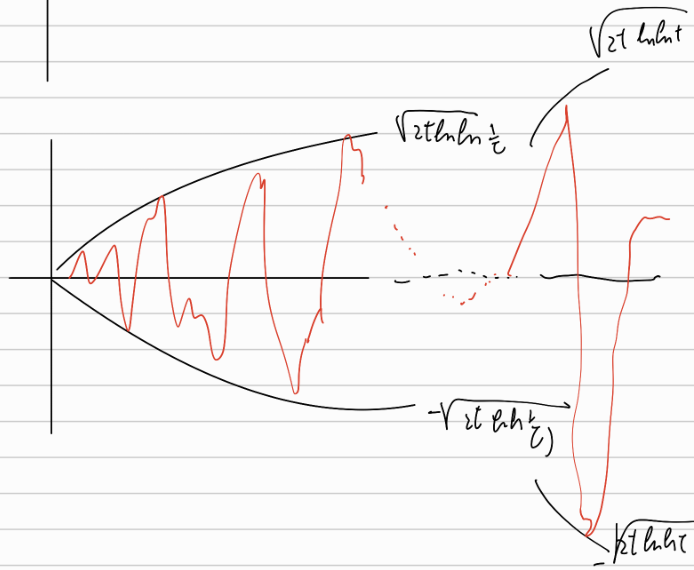 √2t lnln t
√2t lnln 1/t
-√2t ln ln 1/t)
-√2t lnln t